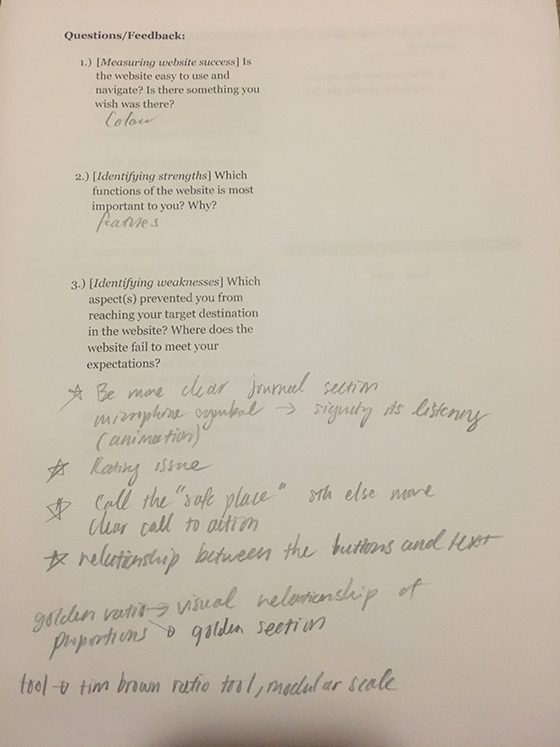 Questions/Feedback:
1.) [Measuring website success] Is
the website easy to use and
navigate? Is there something you
wish was there?
Colour
2.) [Identifying strengths] Which
functions of the website is most
important to you? Why?
3.) [Identifying weaknesses] Which
aspect(s) prevented you from
reaching your target destination
in the website? Where does the
website fail to meet your
expectations?
☆ Be more clear journal section
microphone symbol → signify its listening
(animation)
☆ Rating issue
☆ Call the "safe place" sth else more
clear call to action
☆ relationship between the buttons and text
golden ratio → visual relationship of
proportions → golden section
tool → tim brown ratio tool, modular scale